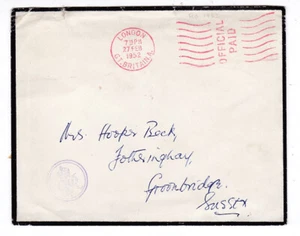 LONDON
7 30 PM
27 FEB
1952
GT. BRITAIN
OFFICIAL
PAID
Mrs. Hooper Beck,
Fotheringhay,
Groombridge.
Sussex